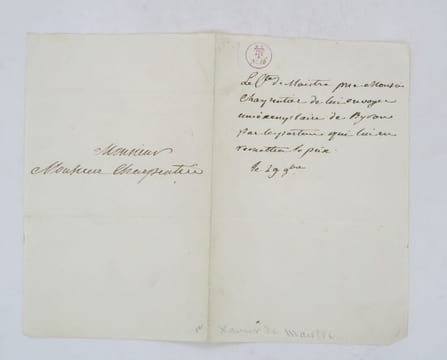 Monsieur
Monsieur Charpentier
Le Cte de Maistre prie Monsieur
Charpentier de lui envoyer
un éxemplaire de Byron
par le porteur qui lui en
remettra le prix.
le 29 9bre
Xavier de Maistre